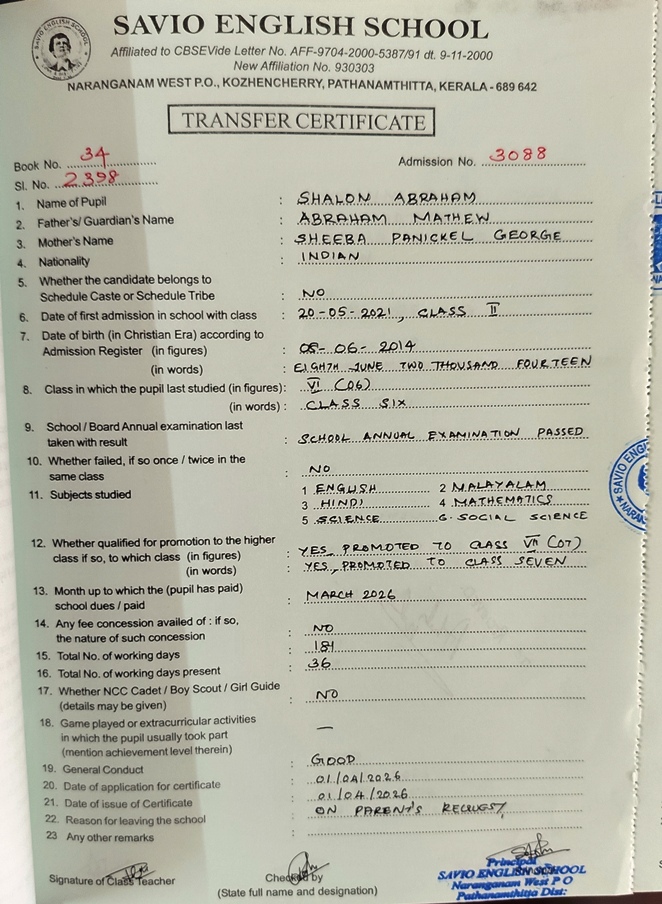 SAVIO ENGLISH SCHOOL
Affiliated to CBSEVide Letter No. AFF-9704-2000-5387/91 dt. 9-11-2000
New Affiliation No. 930303
NARANGANAM WEST P.O., KOZHENCHERRY, PATHANAMTHITTA, KERALA - 689 642
TRANSFER CERTIFICATE
Book No. 34
Admission No. 3088
Sl. No. 2398
1. Name of Pupil : SHALON ABRAHAM
2. Father's/ Guardian's Name : ABRAHAM MATHEW
3. Mother's Name : SHEEBA PANICKEL GEORGE
4. Nationality : INDIAN
5. Whether the candidate belongs to
Schedule Caste or Schedule Tribe : NO
6. Date of first admission in school with class : 20-05-2021, CLASS II
7. Date of birth (in Christian Era) according to
Admission Register (in figures) : 08-06-2014
(in words) : EIGHTH JUNE TWO THOUSAND FOURTEEN
8. Class in which the pupil last studied (in figures): VI (06)
(in words) : CLASS SIX
9. School / Board Annual examination last
taken with result : SCHOOL ANNUAL EXAMINATION PASSED
10. Whether failed, if so once / twice in the
same class : NO
11. Subjects studied 1 ENGLISH 2 MALAYALAM
3 HINDI 4 MATHEMATICS
5 SCIENCE 6. SOCIAL SCIENCE
12. Whether qualified for promotion to the higher
class if so, to which class (in figures) : YES, PROMOTED TO CLASS VII (07)
(in words) : YES, PROMOTED TO CLASS SEVEN
13. Month up to which the (pupil has paid)
school dues / paid : MARCH 2026
14. Any fee concession availed of : if so,
the nature of such concession : NO
15. Total No. of working days : 184
16. Total No. of working days present : 36
17. Whether NCC Cadet / Boy Scout / Girl Guide
(details may be given) : NO
18. Game played or extracurricular activities
in which the pupil usually took part : —
(mention achievement level therein)
19. General Conduct : GOOD
20. Date of application for certificate : 01/04/2026
21. Date of issue of Certificate : 01/04/2026
22. Reason for leaving the school : ON PARENT'S REQUEST
23 Any other remarks :
Signature of Class Teacher
Checked by
(State full name and designation)
Principal
SAVIO ENGLISH SCHOOL
Naranganam West P O
Pathanamthitta Dist: